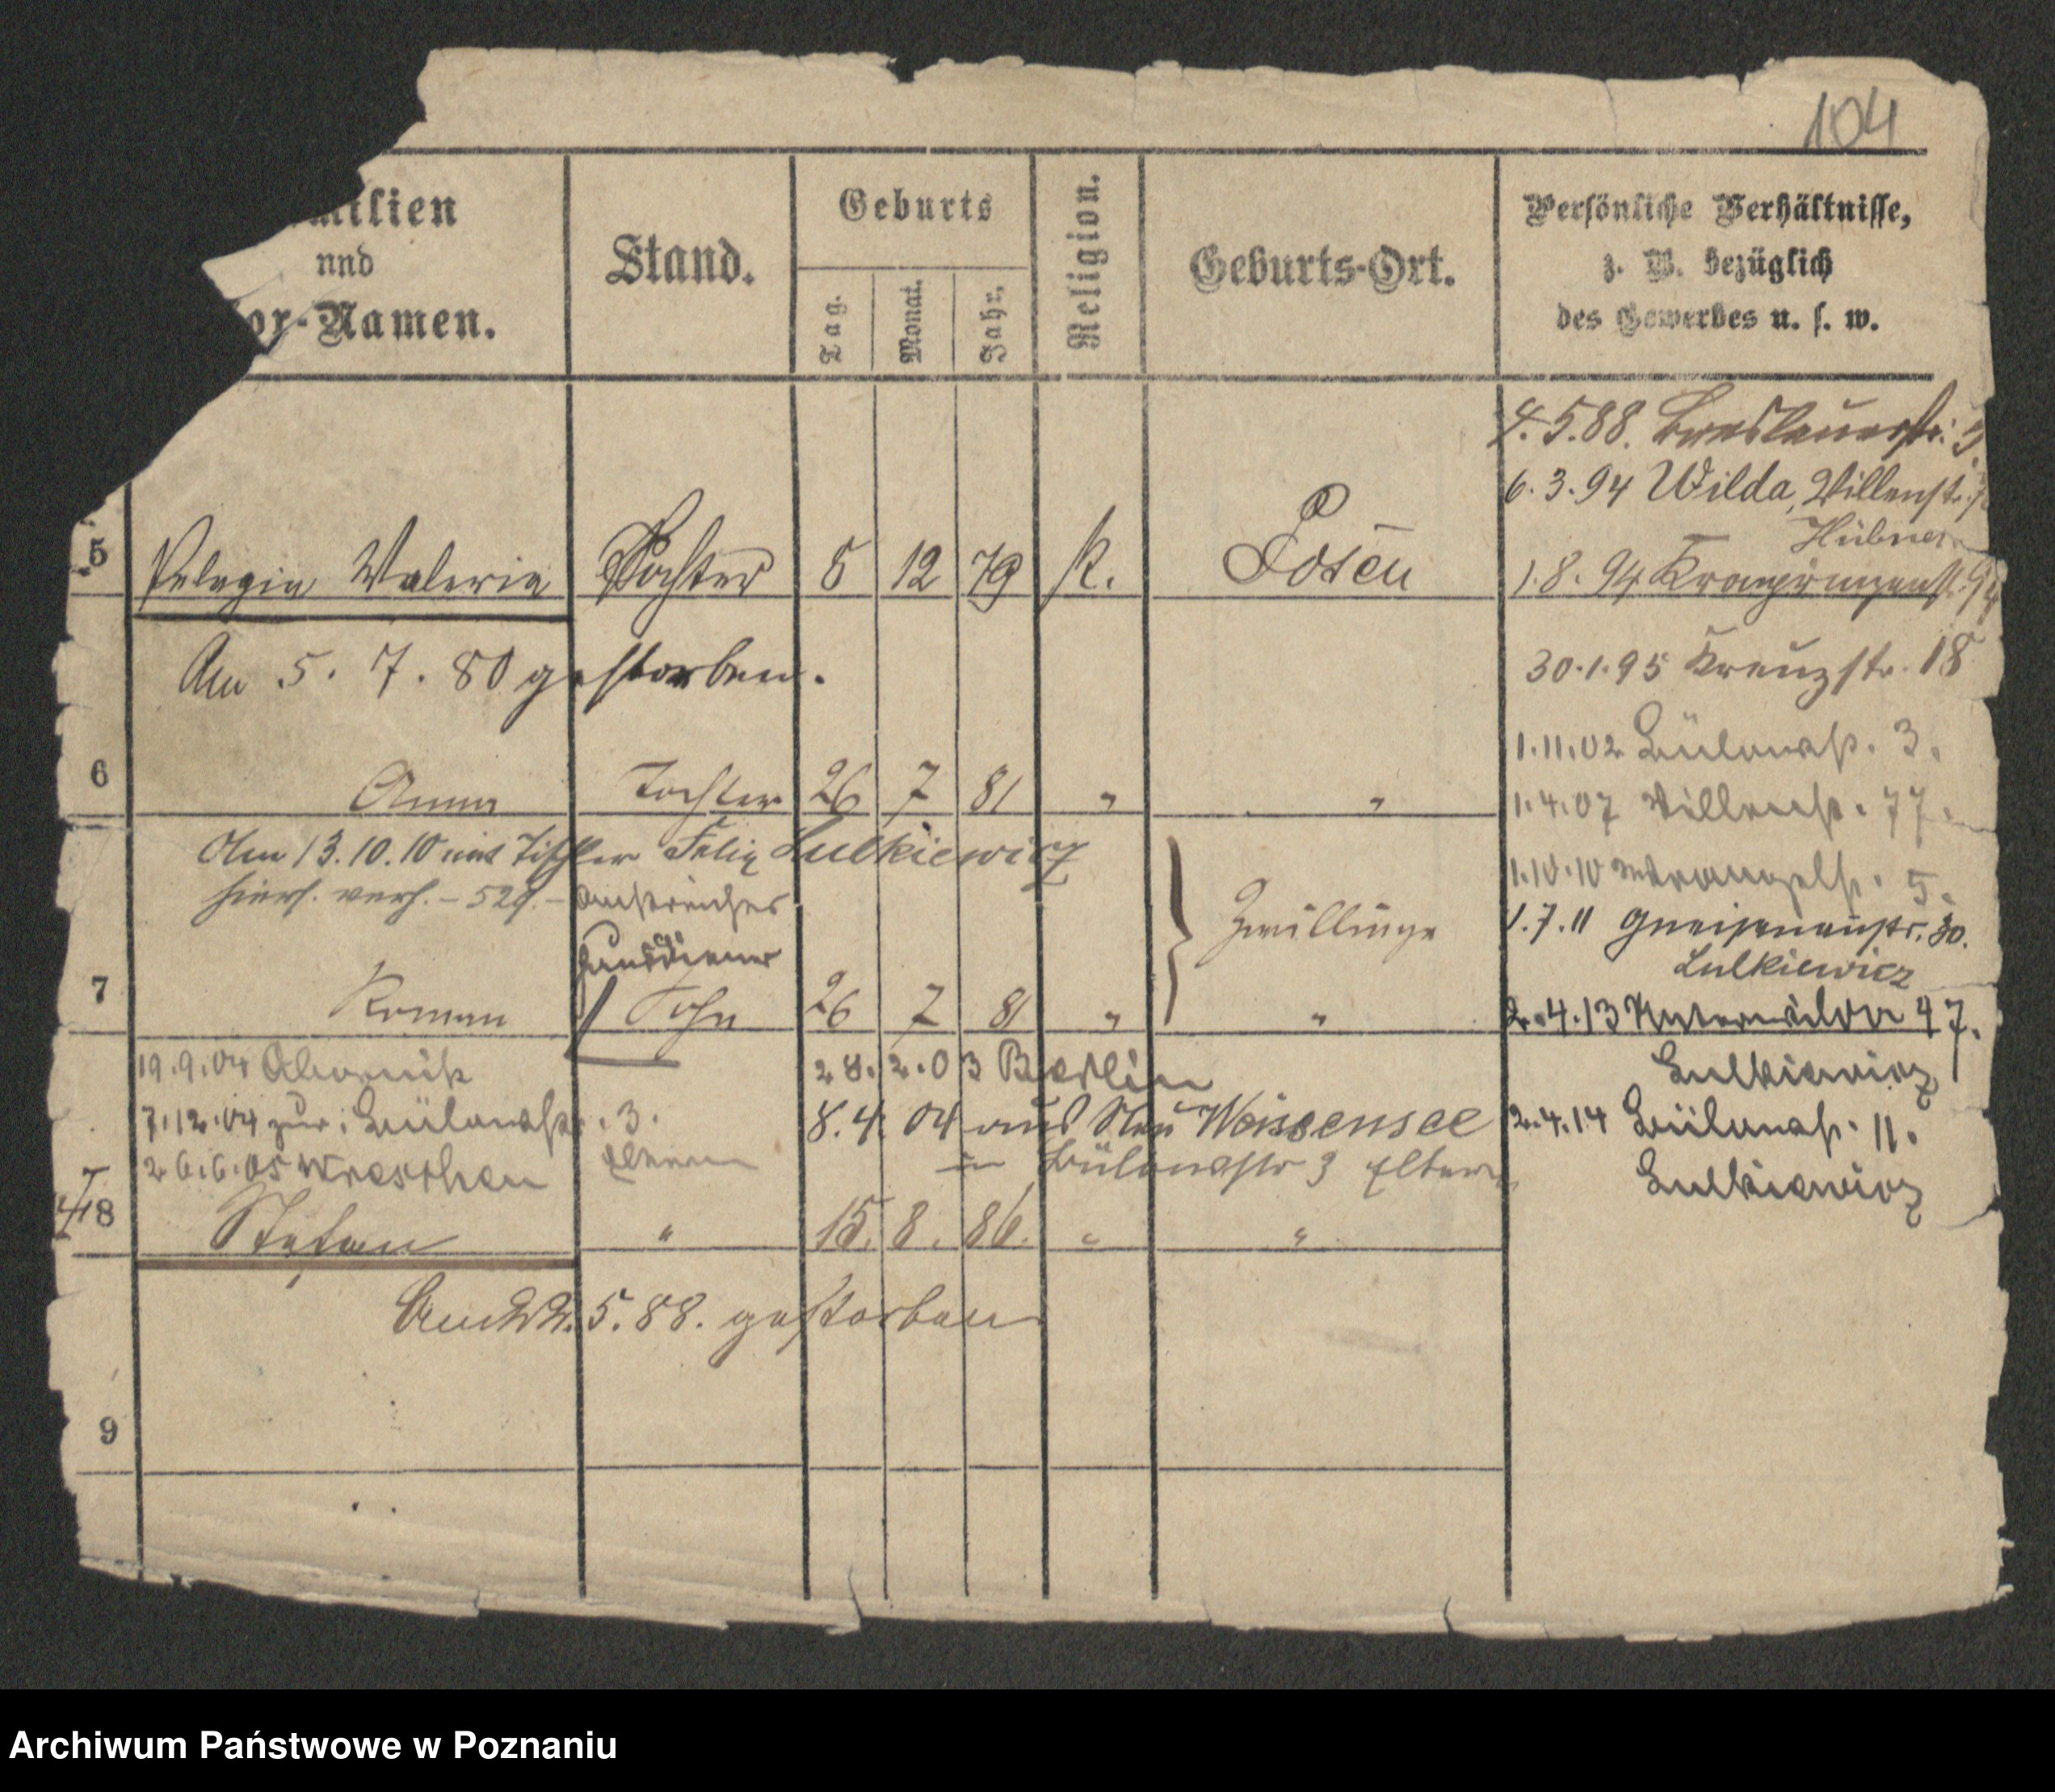 104
milien
und
or-Namen.
Stand.
Geburts
Tag.
Monat.
Jahr.
Religion.
Geburts-Ort.
Persönliche Verhältnisse,
z. B. bezüglich
des Gewerbes u. s. w.
4.5.88. Breslauerstr.
6.3.94 Wilda, Villenstr.
Hübner
5 Pelagia Valeria Tochter 5 12 79 k. Posen
1.8.94 Kronprinzenst. 94
Am 5. 7. 80 gestorben.
30.1.95 Kreuzstr. 18
1.11.02 Bülowstr. 3.
6 Anna Tochter 26 7 81 " "
1.4.07 Villenstr. 77
Am 13.10.10 mit Tischler Felix Lulkiewicz
hiers. verh. – 529. –
1.10.10 Wrangelstr. 5.
Anstreicher
Hausdiener
Zwillinge
1.7.11 Gneisenaustr. 30.
Lulkiewicz
7 Roman Sohn 26 7 81 " "
2.4.13 Unterwilda 47.
Lulkiewicz
19.9.04 Obornik
28.2.03 Berlin
7.12.04 zur. Bülowstr. 3.
8.4.04 aus Neu Weissensee
2.4.14 Bülowstr. 11.
Lulkiewicz
26.6.05 Wreschen
Eltern
Bülowstr 3 Eltern
8 Stefan " 15. 8. 86. " "
Am 22. 5. 88. gestorben
9
Archiwum Państwowe w Poznaniu